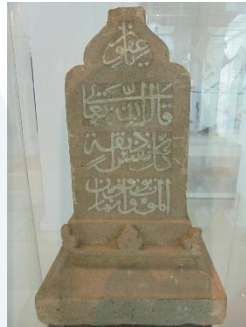 يا غفور
قال الله تعالى
كل نفس ذائقة
الموت